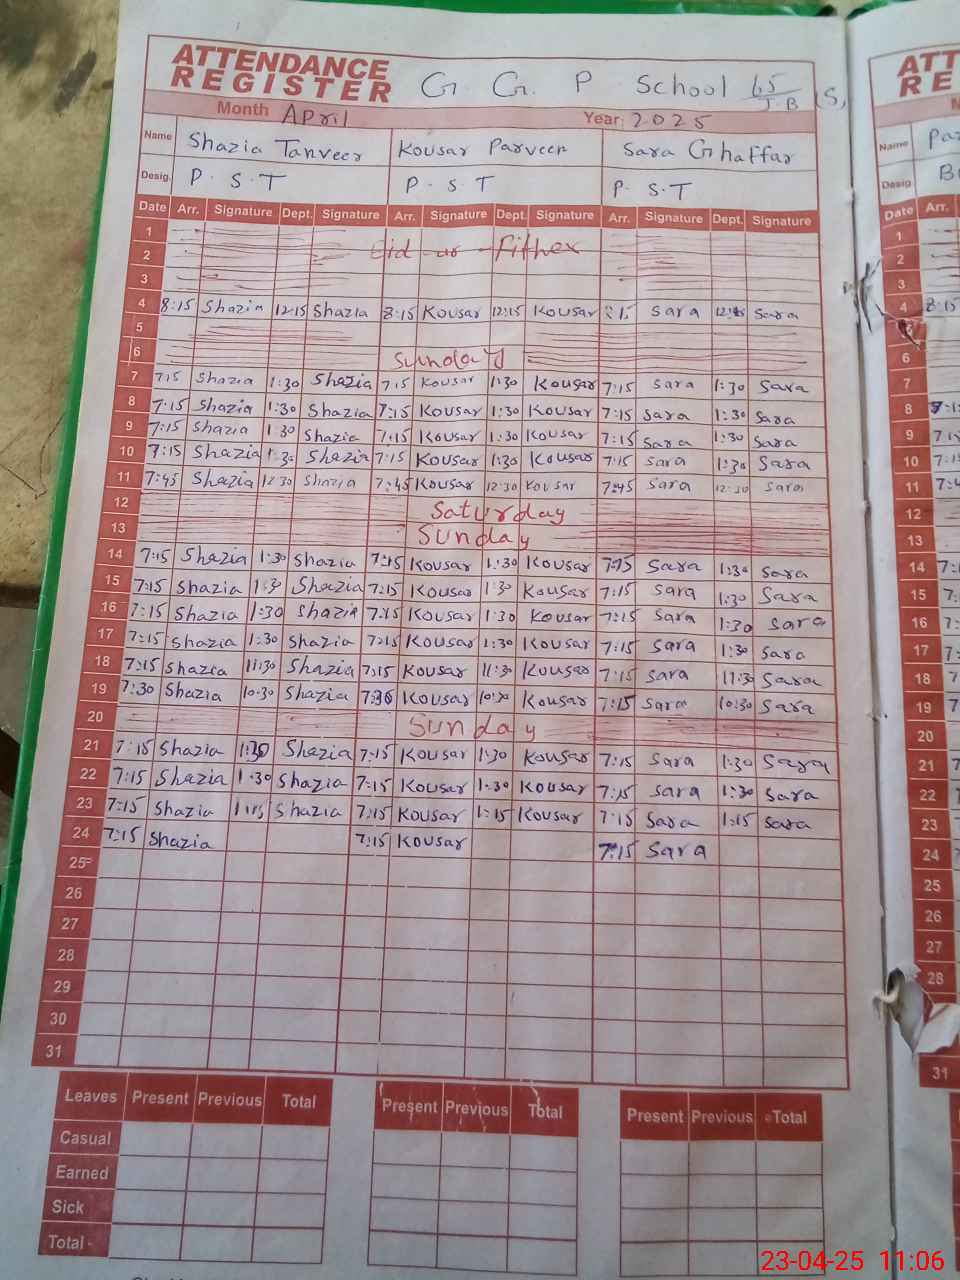 ATTENDANCE REGISTER G. G. P. School 65/J.B (S)
Month April Year 2025
Name Shazia Tanveer Kousar Parveen Sara Ghaffar
Desig. P.S.T P.S.T P.S.T
Date Arr. Signature Dept. Signature Arr. Signature Dept. Signature Arr. Signature Dept. Signature
1
2 Eid-ur-Fither
3
4 8:15 Shazia 12:15 Shazia 8:15 Kousar 12:15 Kousar Sara Sara
5
6 Sunday
7 7:15 Shazia 1:30 Shazia 7:15 Kousar 1:30 Kousar 7:15 Sara 1:30 Sara
8 7:15 Shazia 1:30 Shazia 7:15 Kousar 1:30 Kousar 7:15 Sara 1:30 Sara
9 7:15 Shazia 1:30 Shazia 7:15 Kousar 1:30 Kousar 7:15 Sara 1:30 Sara
10 7:15 Shazia 1:30 Shazia 7:15 Kousar 1:30 Kousar 7:15 Sara 1:30 Sara
11 7:45 Shazia 12:30 Shazia 7:45 Kousar 12:30 Kousar 7:45 Sara 12:30 Sara
12 Saturday
13 Sunday
14 7:15 Shazia 1:30 Shazia 7:15 Kousar 1:30 Kousar 7:15 Sara 1:30 Sara
15 7:15 Shazia 1:30 Shazia 7:15 Kousar 1:30 Kousar 7:15 Sara 1:30 Sara
16 7:15 Shazia 1:30 Shazia 7:15 Kousar 1:30 Kousar 7:15 Sara 1:30 Sara
17 7:15 Shazia 1:30 Shazia 7:15 Kousar 1:30 Kousar 7:15 Sara 1:30 Sara
18 7:15 Shazia 11:30 Shazia 7:15 Kousar 11:30 Kousar 7:15 Sara 11:30 Sara
19 7:30 Shazia 10:30 Shazia 7:30 Kousar 10:30 Kousar 7:15 Sara 10:30 Sara
20 Sunday
21 7:15 Shazia 1:30 Shazia 7:15 Kousar 1:30 Kousar 7:15 Sara 1:30 Sara
22 7:15 Shazia 1:30 Shazia 7:15 Kousar 1:30 Kousar 7:15 Sara 1:30 Sara
23 7:15 Shazia 1:15 Shazia 7:15 Kousar 1:15 Kousar 7:15 Sara 1:15 Sara
24 7:15 Shazia 7:15 Kousar 7:15 Sara
25
26
27
28
29
30
31
Leaves Present Previous Total Present Previous Total Present Previous Total
Casual
Earned
Sick
Total
23-04-25 11:06